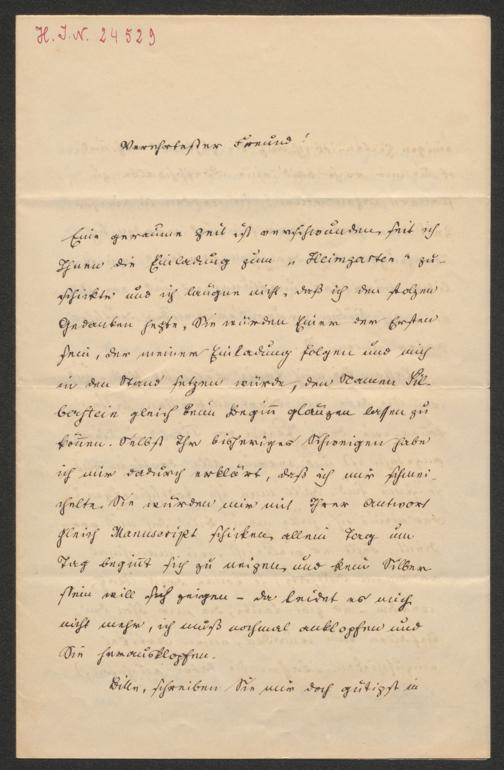 H. I. N. 24529
Verehrtester Freund!
Eine geraume Zeit ist verschwunden, seit ich
Ihnen die Einladung zum „Heimgarten“ zu-
schickte und ich läugne nicht, daß ich den stolzen
Gedanken hegte, Sie würden Einer der Ersten
sein, der meiner Einladung folgen und mich
in den Stand setzen würde, den Namen Sil-
berstein gleich beim Beginn glänzen lassen zu
können. Selbst Ihr bisheriges Schweigen habe
ich mir dadurch erklärt, daß ich mir schmei-
chelte, Sie würden mir mit Ihrer Antwort
gleich Manuscript schicken, allein Tag um
Tag beginnt sich zu neigen, und kein Silber
stein will sich zeigen – da leidet es mich
nicht mehr, ich muß nochmal anklopfen und
Sie herausklopfen.
Bitte, schreiben Sie mir doch gütigst in